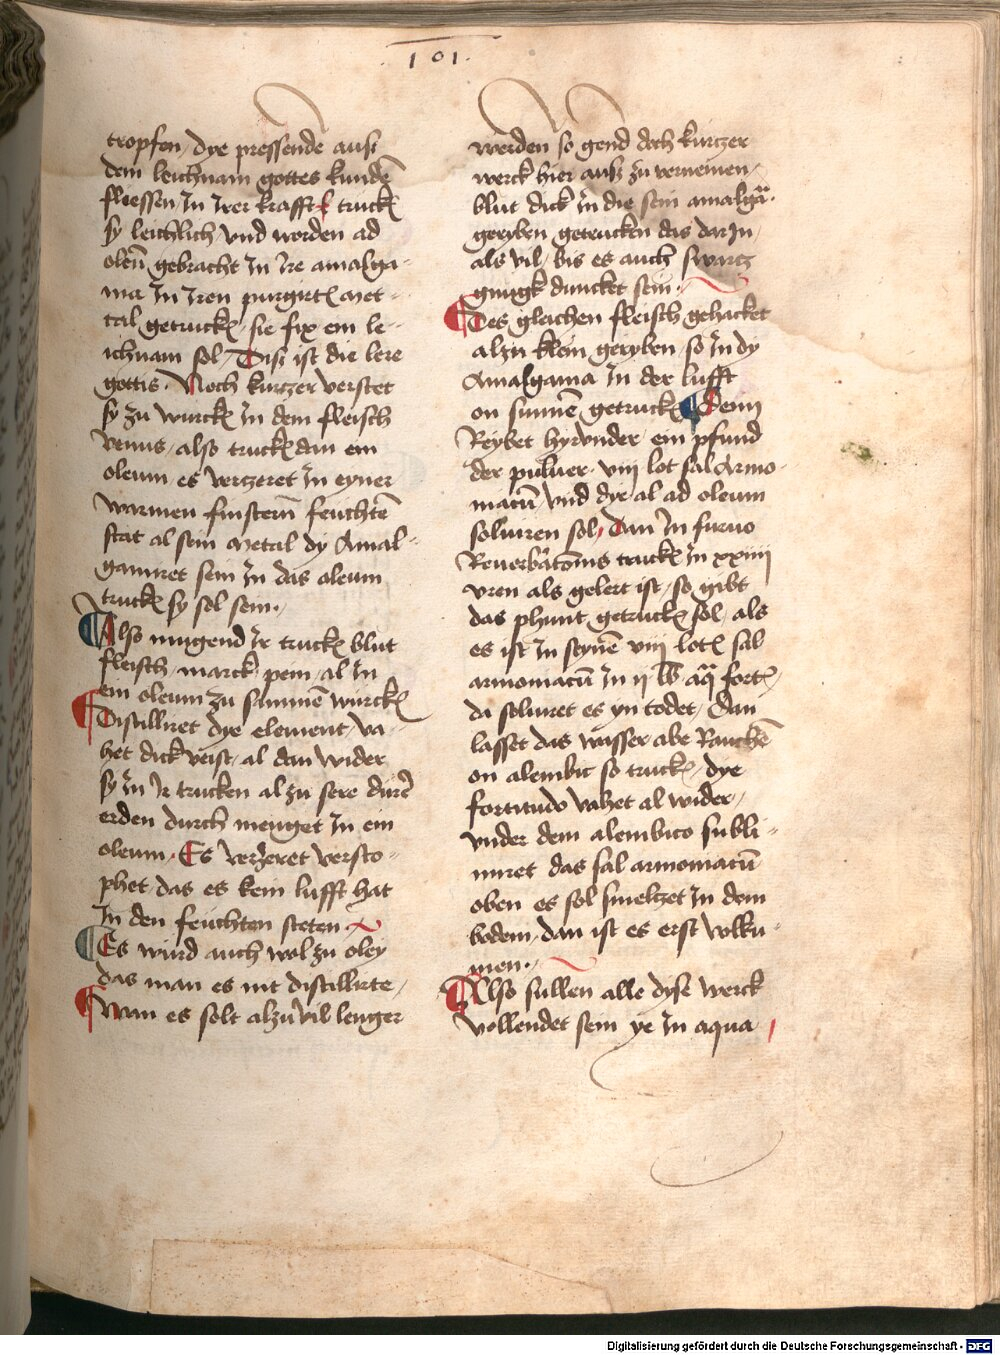 101.
tropfen, dye pressende auß
dem leichnam gottes kunden̄
fliessen, In Irer krafft truck̄
sy leichlich, vnd worden ad
olen̄ gebracht In Ire amalga-
ma In Iren purgirt̄ met-
tal getruck̄, sie fix ein le-
ichnam sol, Diß ist die lere
gottis. Noch kurczer verstet
sy zu wurck̄ In dem fleisch
venus, also truck̄ dan ein
oleum es verzeret In eyner
warmen finstern̄ feuchtē
stat al sein metal dy Amal-
gamiret sein In das oleum
truck̄ sy sol sein.
Also mugend Ir truck̄ blut
fleisch, marck, pein, al In
ein oleum zu samnē wurck̄
Distilliret dye element, va-
het dick veist, al dan wider
sy In Ir trucken al zu sere durē
erden durch menget In ein
oleum. Es verzeret versto-
phet, das es kein lufft hat
In den feuchten steten
Es wurd auch wol zu oley
das man es nit distillirte,
wan es solt alzu vil lenger
werden so gend doch kurczer
werck hier auß zu vernemen,
blut dick In die sein amalgā.
geryben getrucken das dar In,
als vil, bis es auch swartz
gnugk duncket sein.
Des gleichen fleisch gehacket
alzu klein geryben, so In dy
Amalgama In der lufft
on sunnē getruck̄ Denn
Reybet hyrvnder, ein pfund
der puluer, viij lot sal Armo-
niacū vnd dye al ad oleum
soluiren sol, Dan In furno
Reuerbatoms truck̄ In xxiiij
vren als gelert ist, so gibt
das phunt getruck̄ sol, als
es ist In seynē viij lot̄ sal
armoniacū In ij lb aq̄ fort̄,
da soluiret es yn todet, Dan
lasset das wasser abe Rauchē
on alembic so truck̄, dye
fortitudo vahet al wider,
vnder dem alembico subli-
miret das sal armoniacū
oben es sol smelzet In dem
bodem, dan ist es erst volku-
men.
Also sullen alle dyse werck
vollendet sein ye In aqua
Digitalisierung gefördert durch die Deutsche Forschungsgemeinschaft - DFG